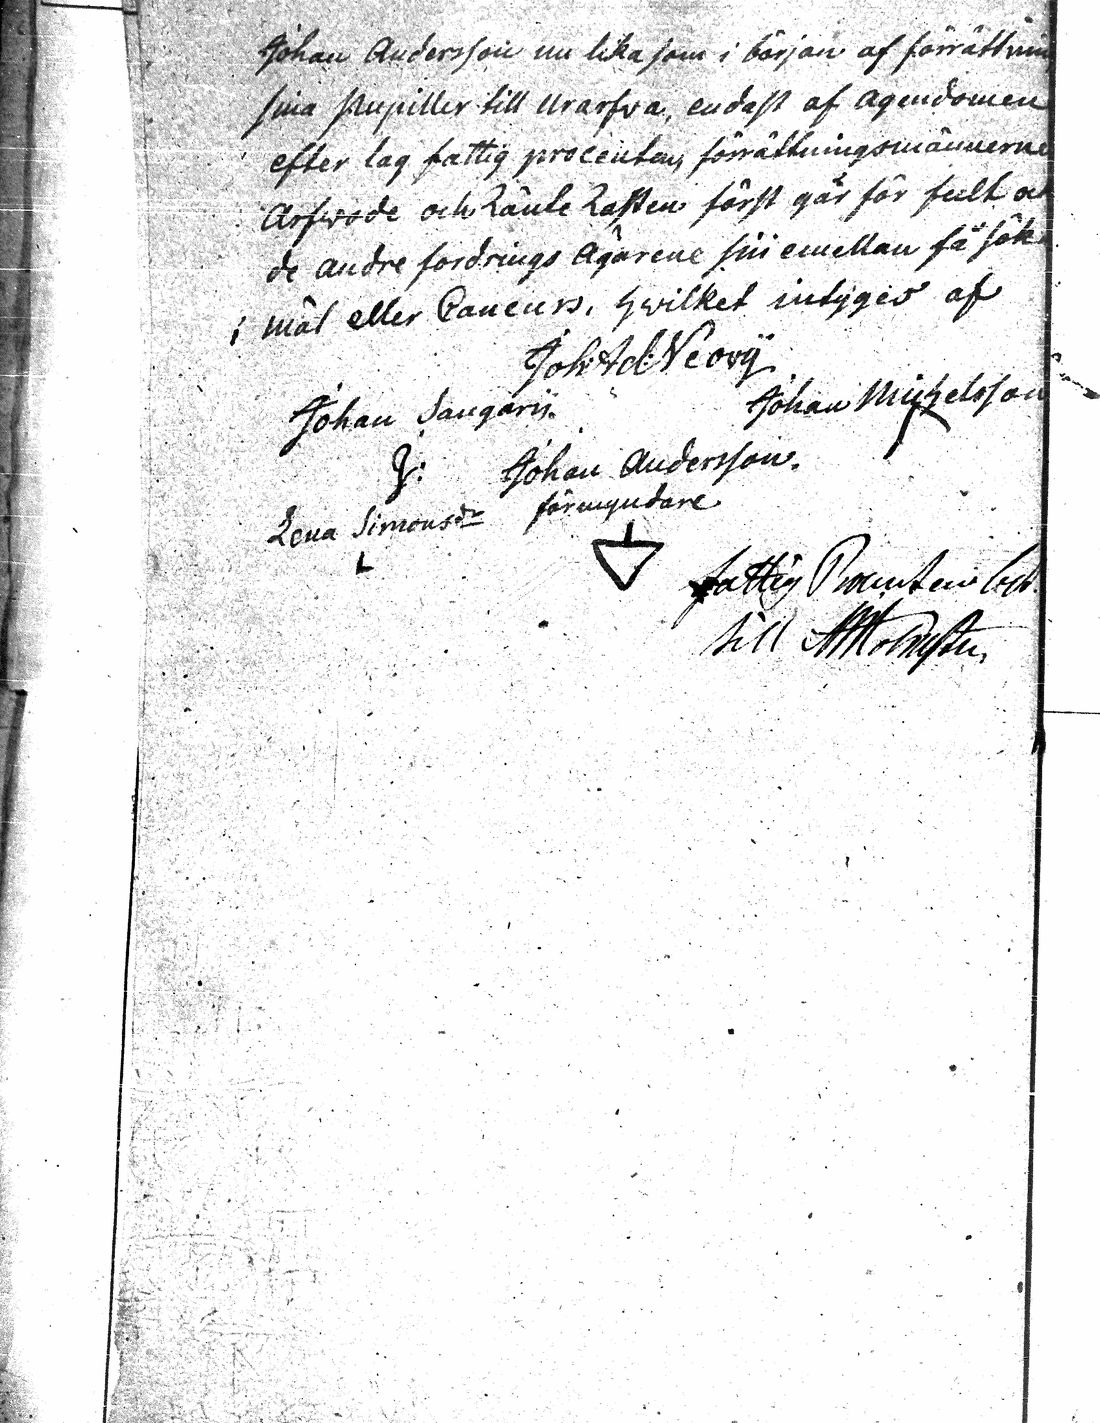 Johan Andersson nu lika som i början af förrättnin
sina Pupiller till Urarfva, endast af Agendomen
efter lag fattig procenten, förrättningsmännerne
Arfwode och Ränte Rasten först går för fult o
de andre fordrings Ägarene sin emellan få sök
i mål eller Caneurs, hwilket intyges af
Joh: Ad: Neovij
Johan Sangarij. Johan Michelsson
Johan Andersson.
förmyndare
Lena Simonsdr
fattig Procenten
till